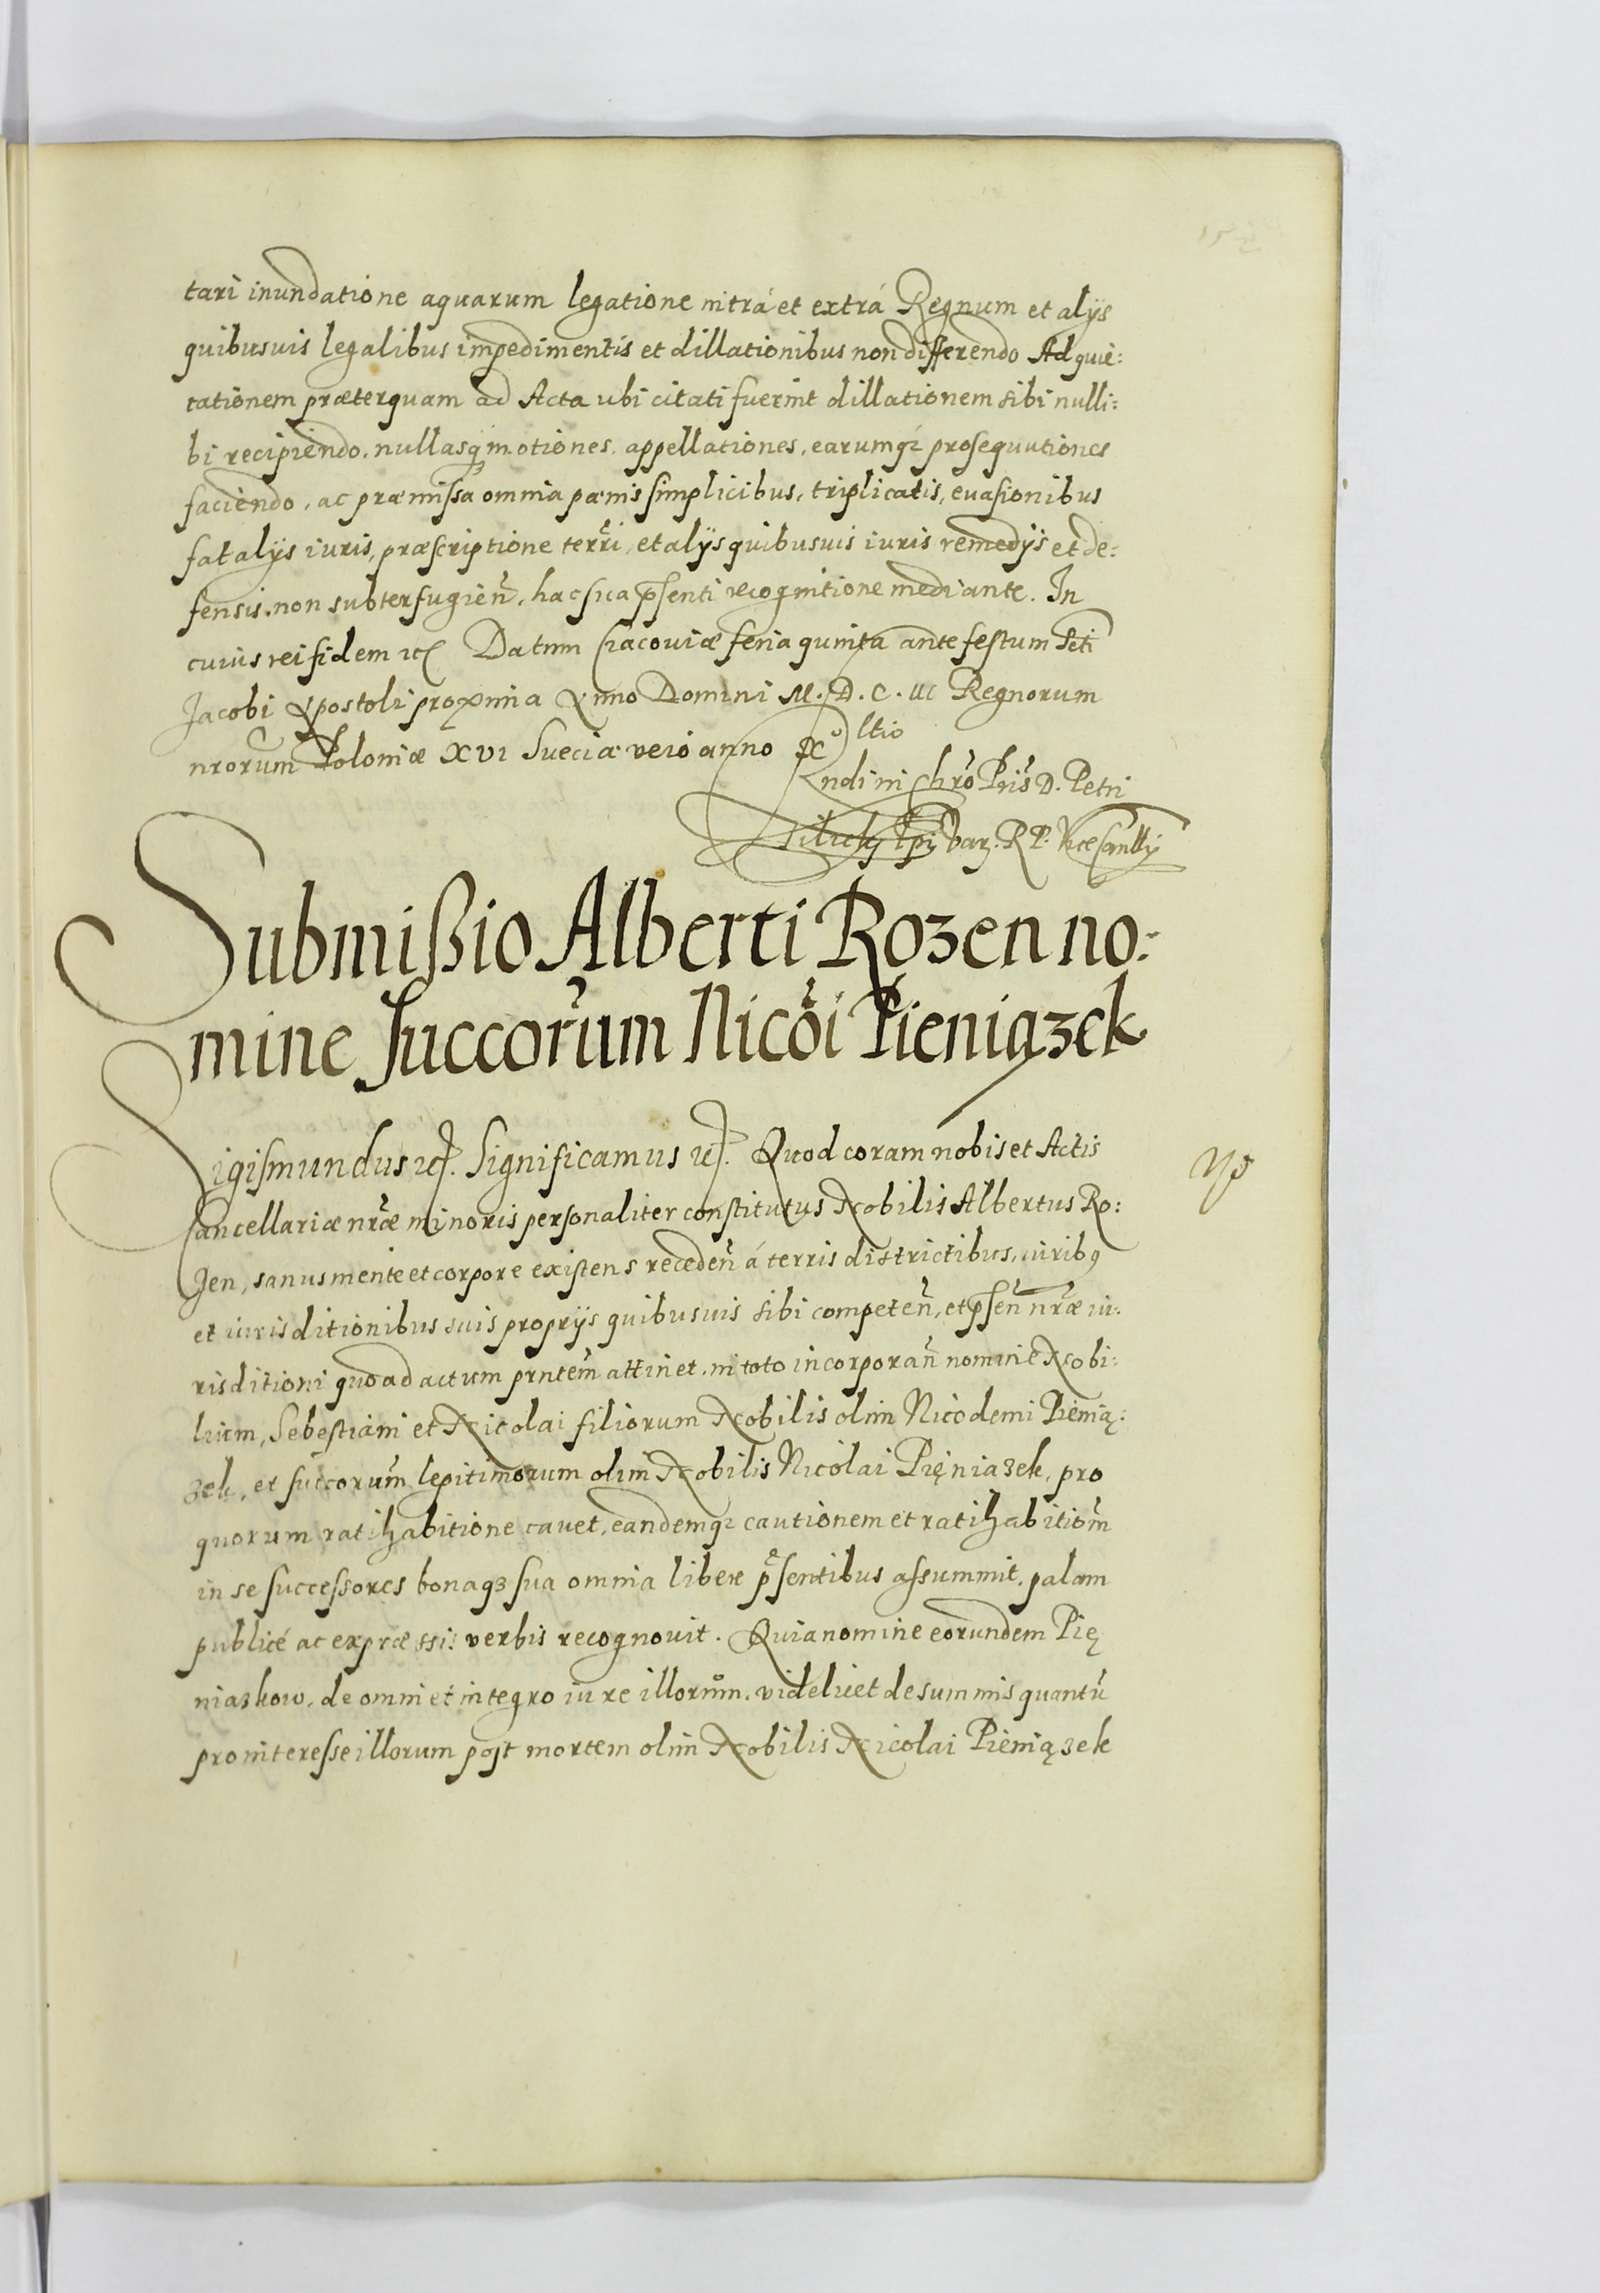 tari inundatione aquarum legatione intrá et extrá Regnum et alÿs
quibusuis legalibus impedimentis et dillationibus non differendo Ad quie:
tationem præterquam ad Acta ubi citati fuerint dillationem sibi nulli:
bi recipiendo, nullasq3 motiones, appellationes, earumq3 prosequutiones
faciendo, ac præmissa omnia pænis simplicibus, triplicatis, euasionibus
fatalÿs iuris, præscriptione terri, et alÿs quibusuis iuris remedÿs et de:
fensis, non subterfugien̄, hac sua pſenti recognitione mediante. In
cuius rei fidem etc Datum Cracouiæ feria quinta ante festum Scti
Jacobi Apostoli proxima Anno Domini M.D.C.III Regnorum
nrorum Poloniæ XVI Sueciæ vero anno X
ltio
Rndi in Chro Pris D. Petri
Tilicky Epi Var. R.P. ViceCanllÿ
Submißio Alberti Rozen no:
mine succorum Nicoi Pieniązek
Sigismundus etc. Significamus etc. Quod coram nobis et Actis
Cancellariæ nræ minoris personaliter constitutus Nobilis Albertus Ro:
zen, sanus mente et corpore existens receden̄ á terris districtibus, iuribq
et iurisditionibus suis proprÿs quibusuis sibi competen̄, et pſen̄ nræ iu:
risditioni quo ad actum prntem attinet, in toto incorporan̄ nomine Nobi:
lium, Sebestiani et Nicolai filiorum Nobilis olim Nicodemi Pienią:
zek, et succorum legitimorum olim Nobilis Nicolai Pięniazek, pro
quorum ratihabitione cauet, eandemq3 cautionem et ratihabitiom
in se successores bonaq3 sua omnia libere pſentibus assummit, palam
publicé ac expræssis verbis recognouit. Quia nomine eorundem Pię
niazkow, de omni et integro iure illorum, videlicet de summis quantū
pro interesse illorum post mortem olim Nobilis Nicolai Pieniązek